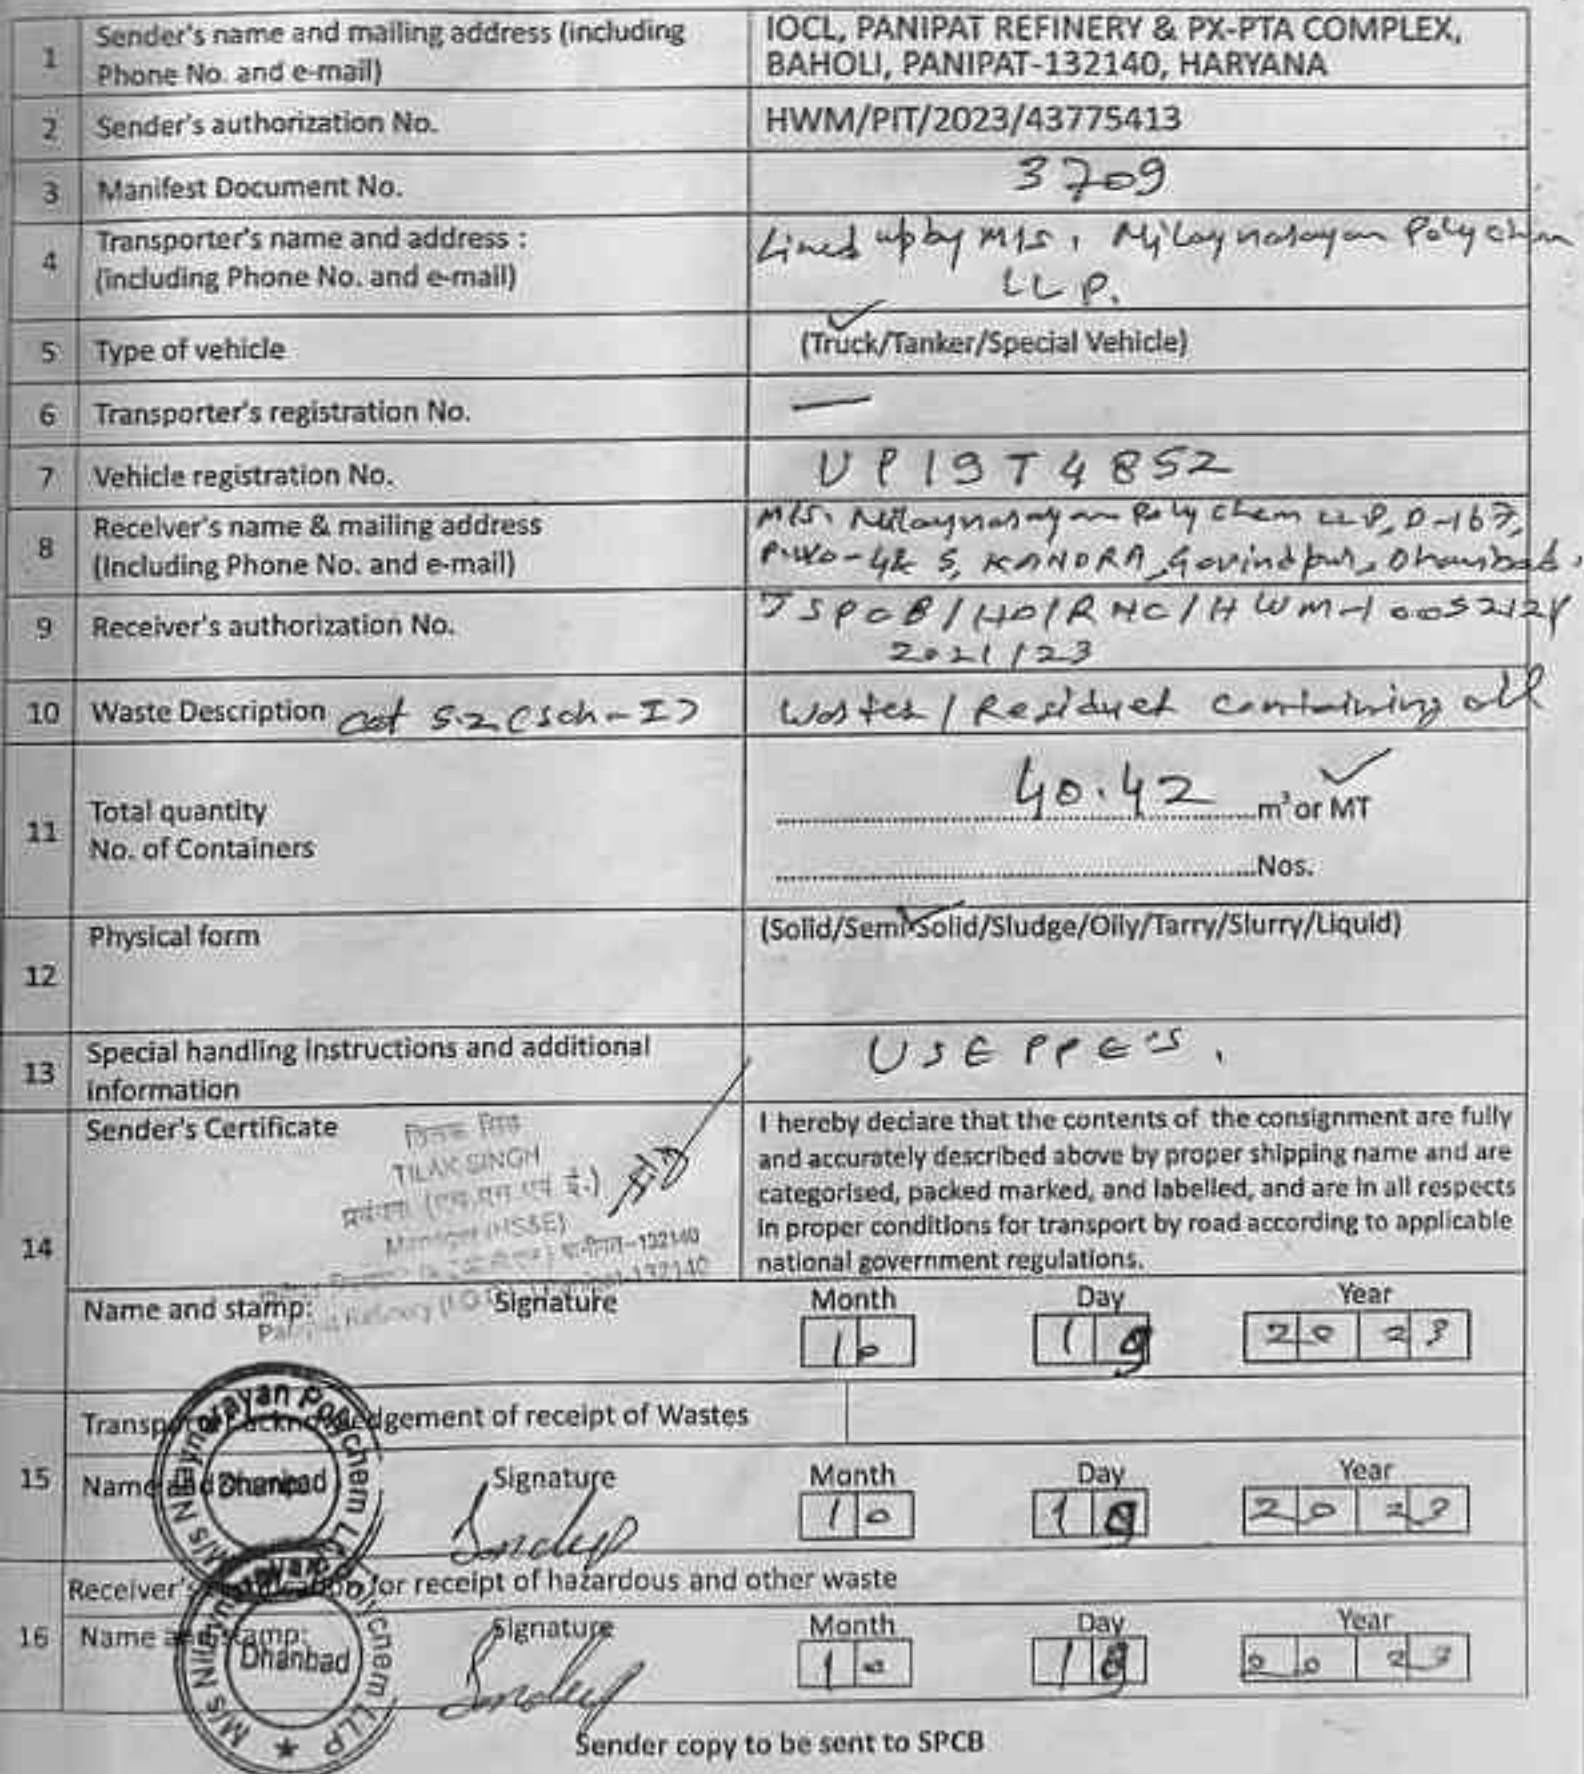 1 Sender's name and mailing address (including Phone No. and e-mail)
IOCL, PANIPAT REFINERY & PX-PTA COMPLEX,
BAHOLI, PANIPAT-132140, HARYANA
2 Sender's authorization No. HWM/PIT/2023/43775413
3 Manifest Document No. 3709
4 Transporter's name and address :
(including Phone No. and e-mail)
Lined up by M/s, Nilaynarayan Polychem
LLP.
5 Type of vehicle (Truck/Tanker/Special Vehicle)
6 Transporter's registration No. —
7 Vehicle registration No. UP19T4852
8 Receiver's name & mailing address
(Including Phone No. and e-mail)
M/S. Nilaynarayan Polychem LLP, D-167,
KANDRA, Govindpur, Dhanbad.
9 Receiver's authorization No.
JSPCB/HO/RNC/HWM-
2021/23
10 Waste Description Cat 5.2 (Sch-I) Wastes / Residues Containing oil
11 Total quantity
No. of Containers
40.42 m³ or MT
Nos.
12 Physical form (Solid/Semi Solid/Sludge/Oily/Tarry/Slurry/Liquid)
13 Special handling instructions and additional
information
USE PPE'S.
14 Sender's Certificate
TILAK SINGH
Manager (HS&E)
I hereby declare that the contents of the consignment are fully
and accurately described above by proper shipping name and are
categorised, packed marked, and labelled, and are in all respects
in proper conditions for transport by road according to applicable
national government regulations.
Name and stamp: Signature Month Day Year
10 19 2023
15 Transporter acknowledgement of receipt of Wastes
Name and stamp: Signature Month Day Year
Sandeep 10 19 2023
M/s Nilaynarayan Polychem LLP
Dhanbad
Receiver's certification for receipt of hazardous and other waste
16 Name and stamp: Signature Month Day Year
Sandeep 10 19 0023
M/s Nilaynarayan Polychem LLP ★
Dhanbad
Sender copy to be sent to SPCB